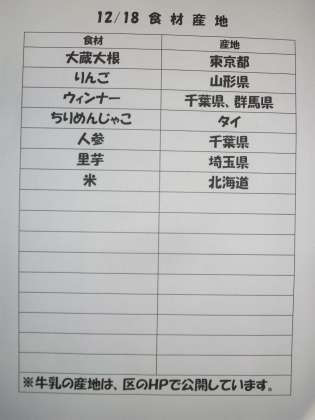 12/18 食材産地
食材 産地
大蔵大根 東京都
りんご 山形県
ウィンナー 千葉県、群馬県
ちりめんじゃこ タイ
人参 千葉県
里芋 埼玉県
米 北海道
※牛乳の産地は、区のHPで公開しています。